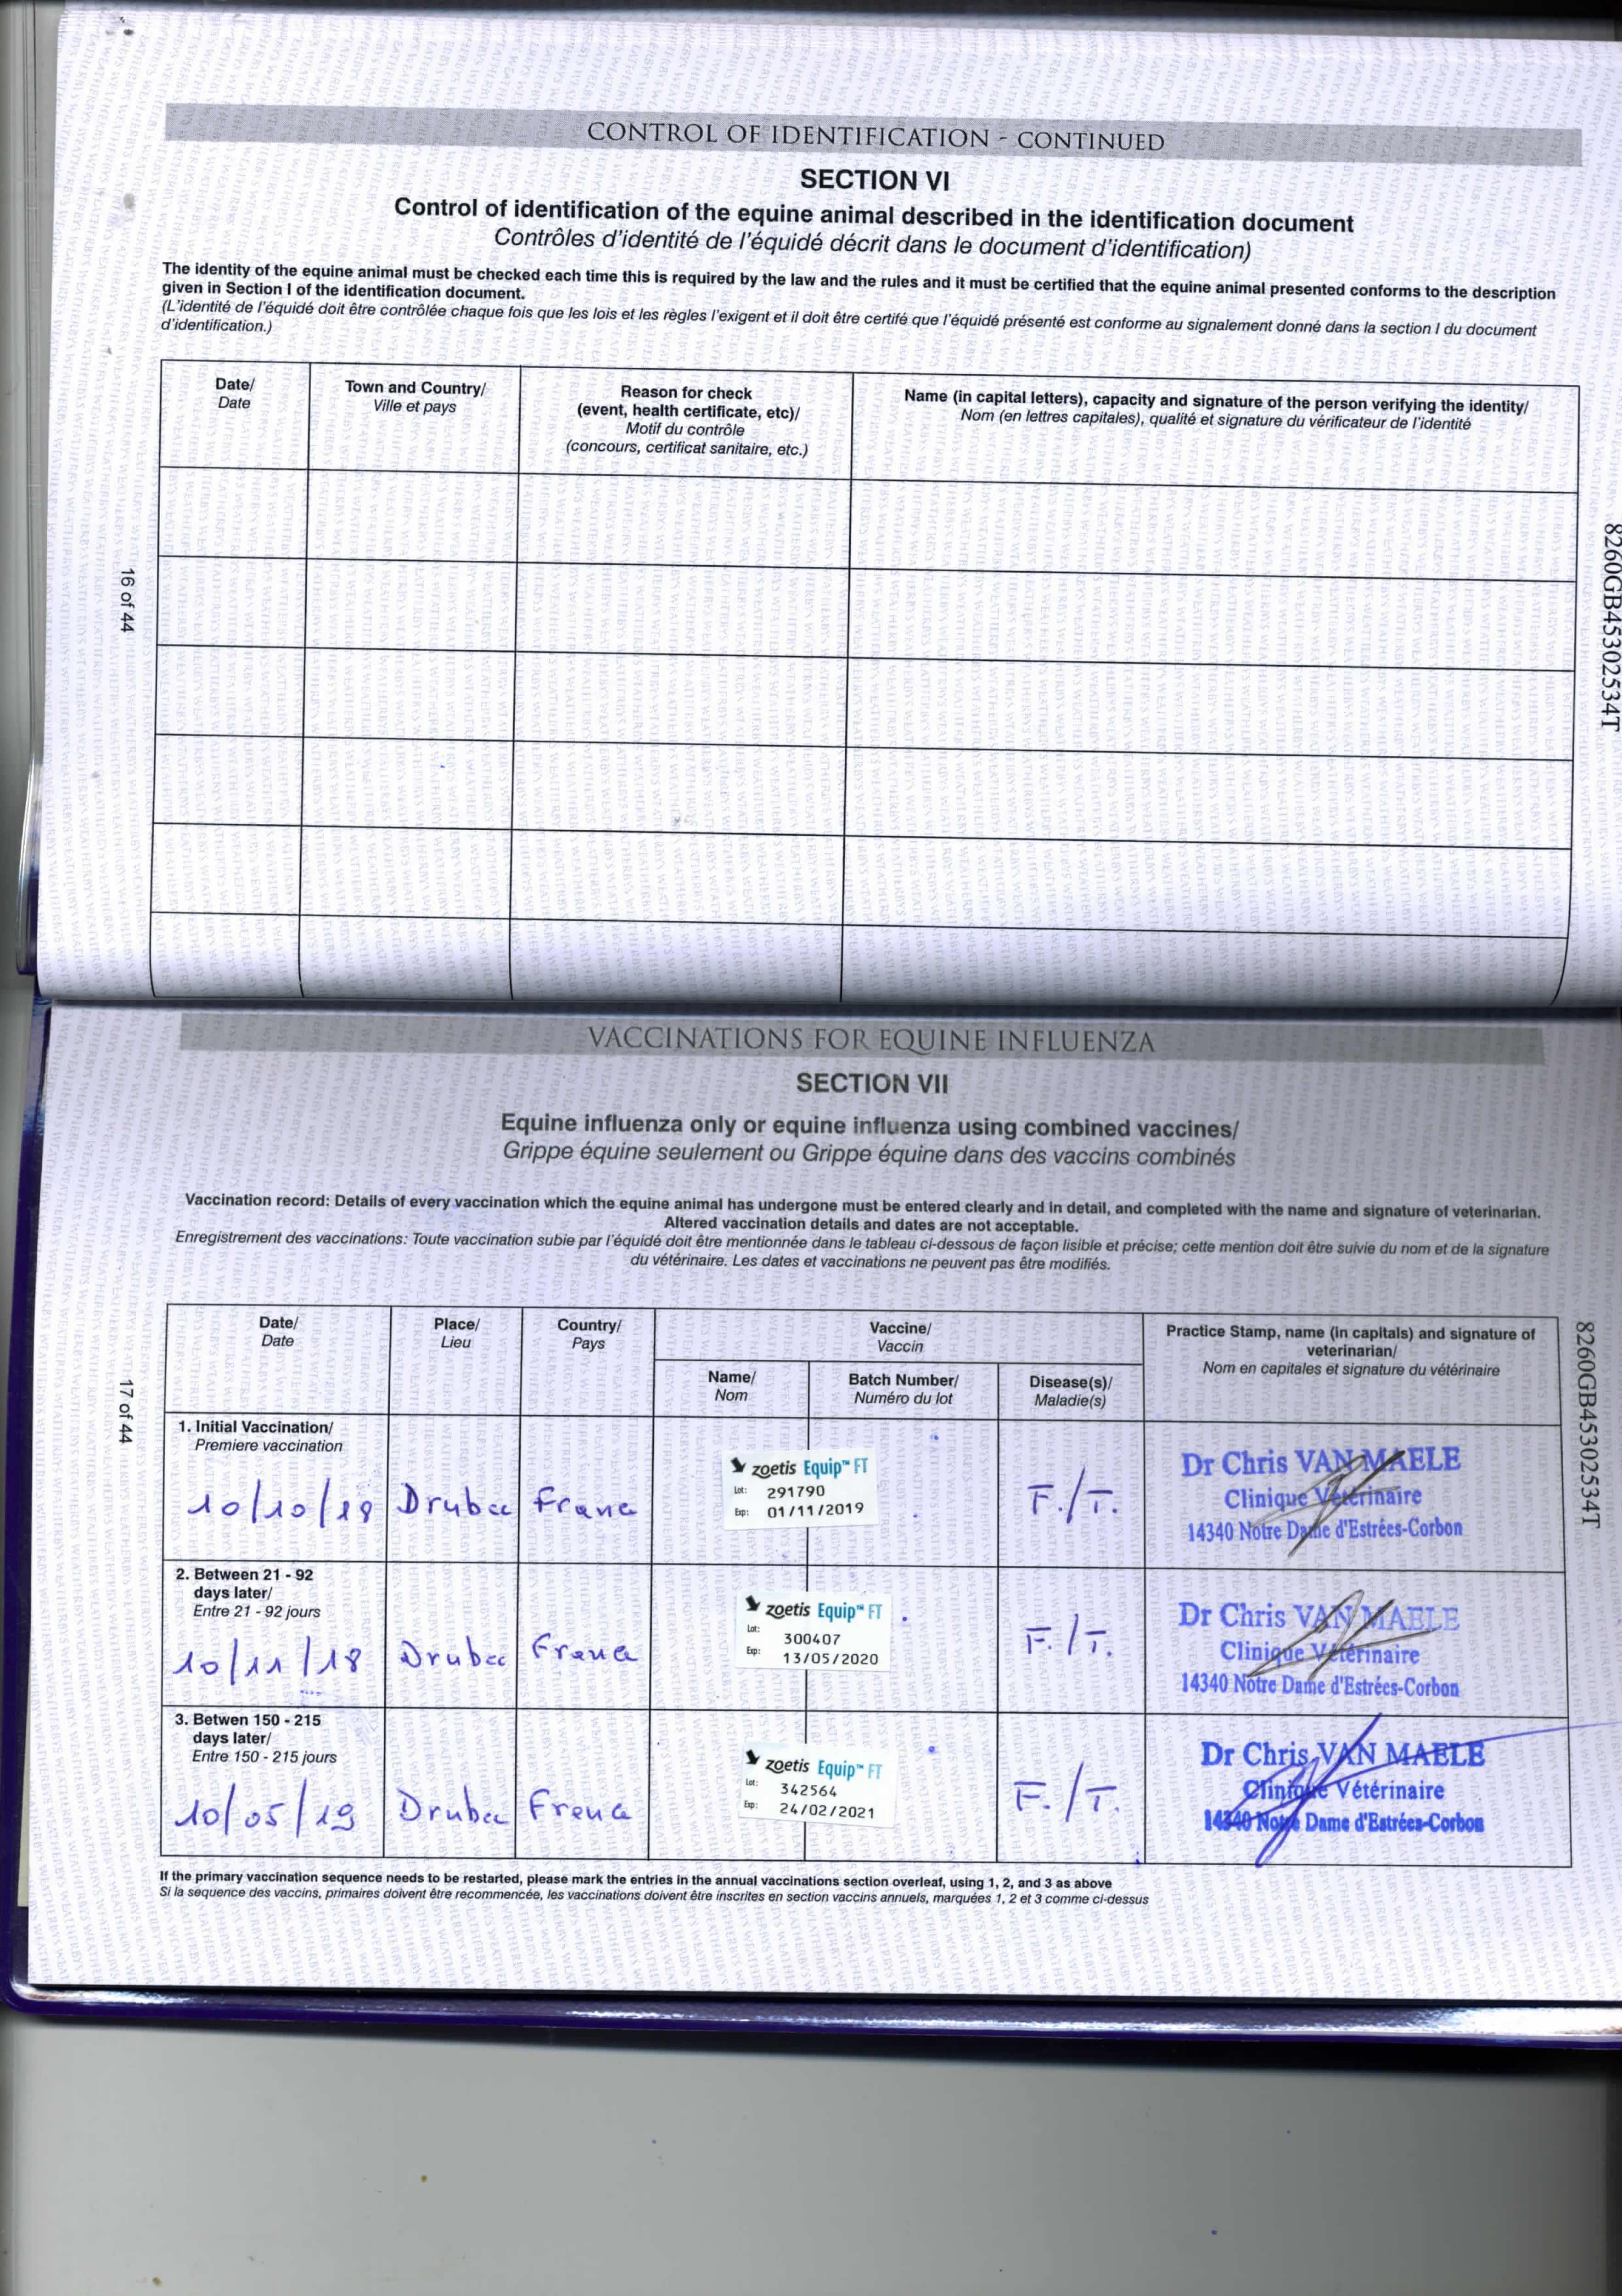 CONTROL OF IDENTIFICATION - CONTINUED
SECTION VI
Control of identification of the equine animal described in the identification document
Contrôles d'identité de l'équidé décrit dans le document d'identification)
The identity of the equine animal must be checked each time this is required by the law and the rules and it must be certified that the equine animal presented conforms to the description
given in Section I of the identification document.
(L'identité de l'équidé doit être contrôlée chaque fois que les lois et les règles l'exigent et il doit être certifé que l'équidé présenté est conforme au signalement donné dans la section I du document
d'identification.)
Date/
Date
Town and Country/
Ville et pays
Reason for check
(event, health certificate, etc)/
Motif du contrôle
(concours, certificat sanitaire, etc.)
Name (in capital letters), capacity and signature of the person verifying the identity/
Nom (en lettres capitales), qualité et signature du vérificateur de l'identité
16 of 44
8260GB45302534T
VACCINATIONS FOR EQUINE INFLUENZA
SECTION VII
Equine influenza only or equine influenza using combined vaccines/
Grippe équine seulement ou Grippe équine dans des vaccins combinés
Vaccination record: Details of every vaccination which the equine animal has undergone must be entered clearly and in detail, and completed with the name and signature of veterinarian.
Altered vaccination details and dates are not acceptable.
Enregistrement des vaccinations: Toute vaccination subie par l'équidé doit être mentionnée dans le tableau ci-dessous de façon lisible et précise; cette mention doit être suivie du nom et de la signature
du vétérinaire. Les dates et vaccinations ne peuvent pas être modifiés.
Date/
Date
Place/
Lieu
Country/
Pays
Vaccine/
Vaccin
Name/
Nom
Batch Number/
Numéro du lot
Disease(s)/
Maladie(s)
Practice Stamp, name (in capitals) and signature of
veterinarian/
Nom en capitales et signature du vétérinaire
1. Initial Vaccination/
Premiere vaccination
10/10/18 Drubec France
zoetis Equip™ FT
Lot: 291790
Exp: 01/11/2019
F./T.
Dr Chris VAN MAELE
Clinique Vétérinaire
14340 Notre Dame d'Estrées-Corbon
2. Between 21 - 92
days later/
Entre 21 - 92 jours
10/11/18 Drubec France
zoetis Equip™ FT
Lot: 300407
Exp: 13/05/2020
F./T.
Dr Chris VAN MAELE
Clinique Vétérinaire
14340 Notre Dame d'Estrées-Corbon
3. Betwen 150 - 215
days later/
Entre 150 - 215 jours
10/05/19 Drubec France
zoetis Equip™ FT
Lot: 342564
Exp: 24/02/2021
F./T.
Dr Chris VAN MAELE
Clinique Vétérinaire
14340 Notre Dame d'Estrées-Corbon
17 of 44
8260GB45302534T
If the primary vaccination sequence needs to be restarted, please mark the entries in the annual vaccinations section overleaf, using 1, 2, and 3 as above
Si la sequence des vaccins, primaires doivent être recommencée, les vaccinations doivent être inscrites en section vaccins annuels, marquées 1, 2 et 3 comme ci-dessus